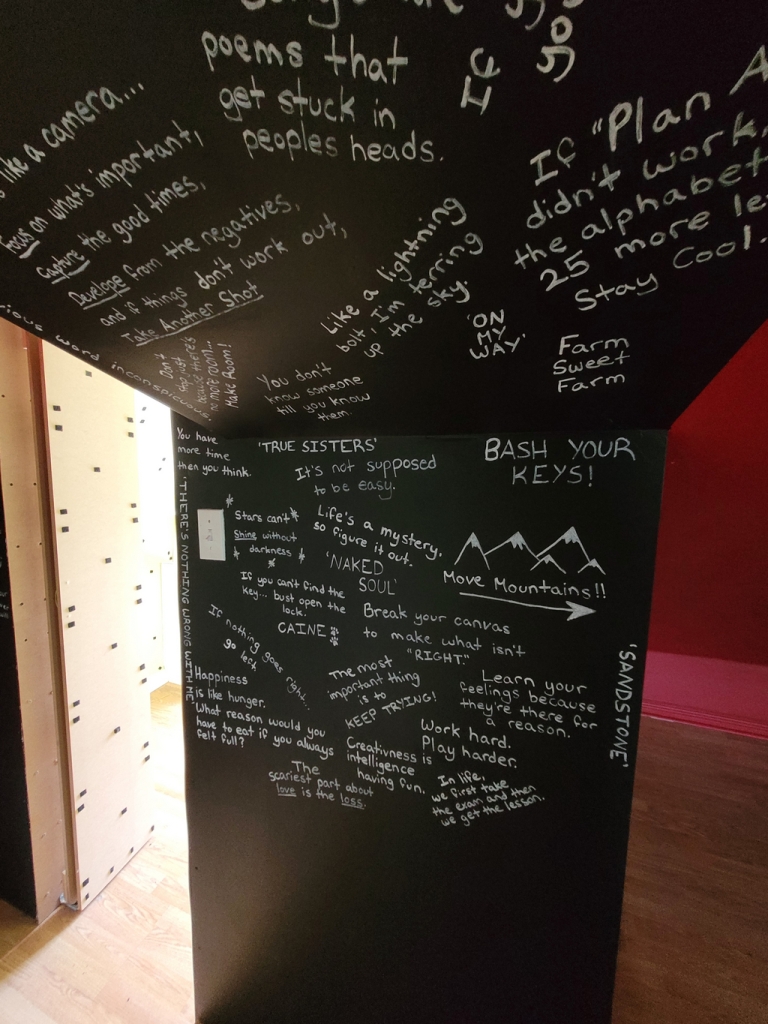 poems that
get stuck in
peoples heads.
If
like a camera...
Focus on what's important,
Capture the good times,
Develope from the negatives,
and if things don't work out,
Take Another Shot
If "Plan A
didn't work,
the alphabet
25 more le
Stay Cool.
Like a lightning
bolt, I'm terring
up the sky.
'ON
MY
WAY'
Farm
Sweet
Farm
word inconspicuous.
Don't
because there's
no more room...
Make Room!
You don't
know someone
till you know
them.
You have
more time
then you think.
'TRUE SISTERS'
It's not supposed
to be easy.
BASH YOUR
KEYS!
'THERE'S NOTHING WRONG WITH ME'
Stars can't
Shine without
darkness
Life's a mystery,
so figure it out.
'NAKED
SOUL'
Move Mountains!!
If you can't find the
key... bust open the
lock.
CAINE
Break your canvas
to make what isn't
"RIGHT."
If nothing goes right...
go left
Happiness
is like hunger.
What reason would you
have to eat if you always
felt full?
The most
important thing
is to
KEEP TRYING!
Learn your
feelings because
they're there for
a reason.
'SANDSTONE'
Work hard.
Play harder.
Creativness is
intelligence
having fun.
The
scariest part about
love is the loss.
In life,
we first take
the exam and then
we get the lesson.